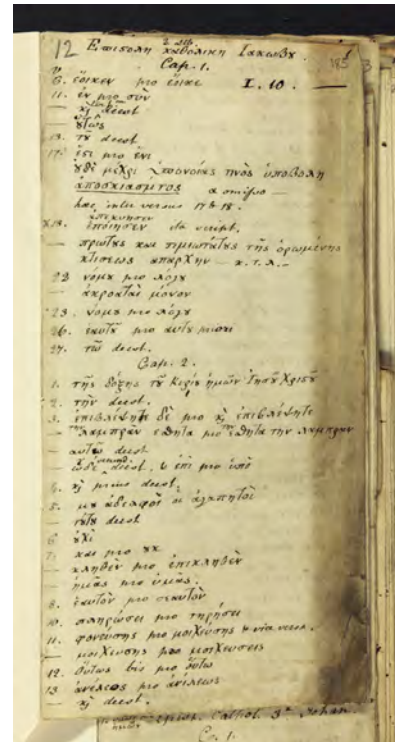 12 Επιστολη καθολικη Ιακωβȣ.
185
Cap. 1.
6. ἔοικεν pro ἔοικε I. 10. —
11. ἐν pro σὺν
— κ̀ deest
— ȣ̓τως
13. τȣ̃ deest.
17. ἔςι pro ἔνι
ȣ̓δὲ μέχρι ὑπονοίας τινὸς ὑποβολὴ
ἀποσκιασματος a omisso —
haec inter versus 17 & 18.
ἀπεκυησεν
18. ἐποίησεν ita script.
— πρωτȣς και τιμιωτατȣς της ορωμενης
κτισεως απαρχην — κ.τ.λ. —
22 νόμȣ pro λόγȣ
— ἀκροαταὶ μόνον
23. νομȣ pro λόγȣ
26. ἑαυτȣ̃ pro αυτȣ
27. τῷ deest.
Cap. 2.
1. τῆς δόξης τȣ̃ Κυρίȣ ἡμῶν Ἰησȣ̃ Χριςȣ̃
2. τὴν deest.
3. ἐπιβλέψητε δὲ pro κ̀ ἐπιβλέψητε
— λαμπρὰν ἐσθῆτα pro ἐσθῆτα την λαμπραν
— αυτῷ deest
— ὧδε deest. & ἐπι pro ὑπὸ
4. κ̀ deest.
5. μȣ ἀδελφοὶ οἱ ἀγαπητοὶ
— τȣ́τȣ deest
6 ȣ̓χὶ
7. και pro ȣκ
— κληθὲν pro ἐπικληθὲν
— ἡμᾶς pro ὑμᾶς.
8. ἑαυτὸν pro σεαυτὸν
10. πληρώσει pro τηρήσει
11. φονευσης pro μοιχεύσης & vice versa.
— μοιχευσης pro μοιχευσεις
12. οὕτως bis pro οὕτω
13 ἀνέλεος pro ἀνίλεως
— κ̀ deest.
Cathol. 3ᵃ Johan.